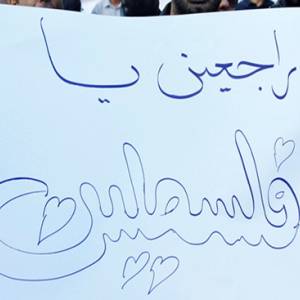 راجعين يا
فلسطين